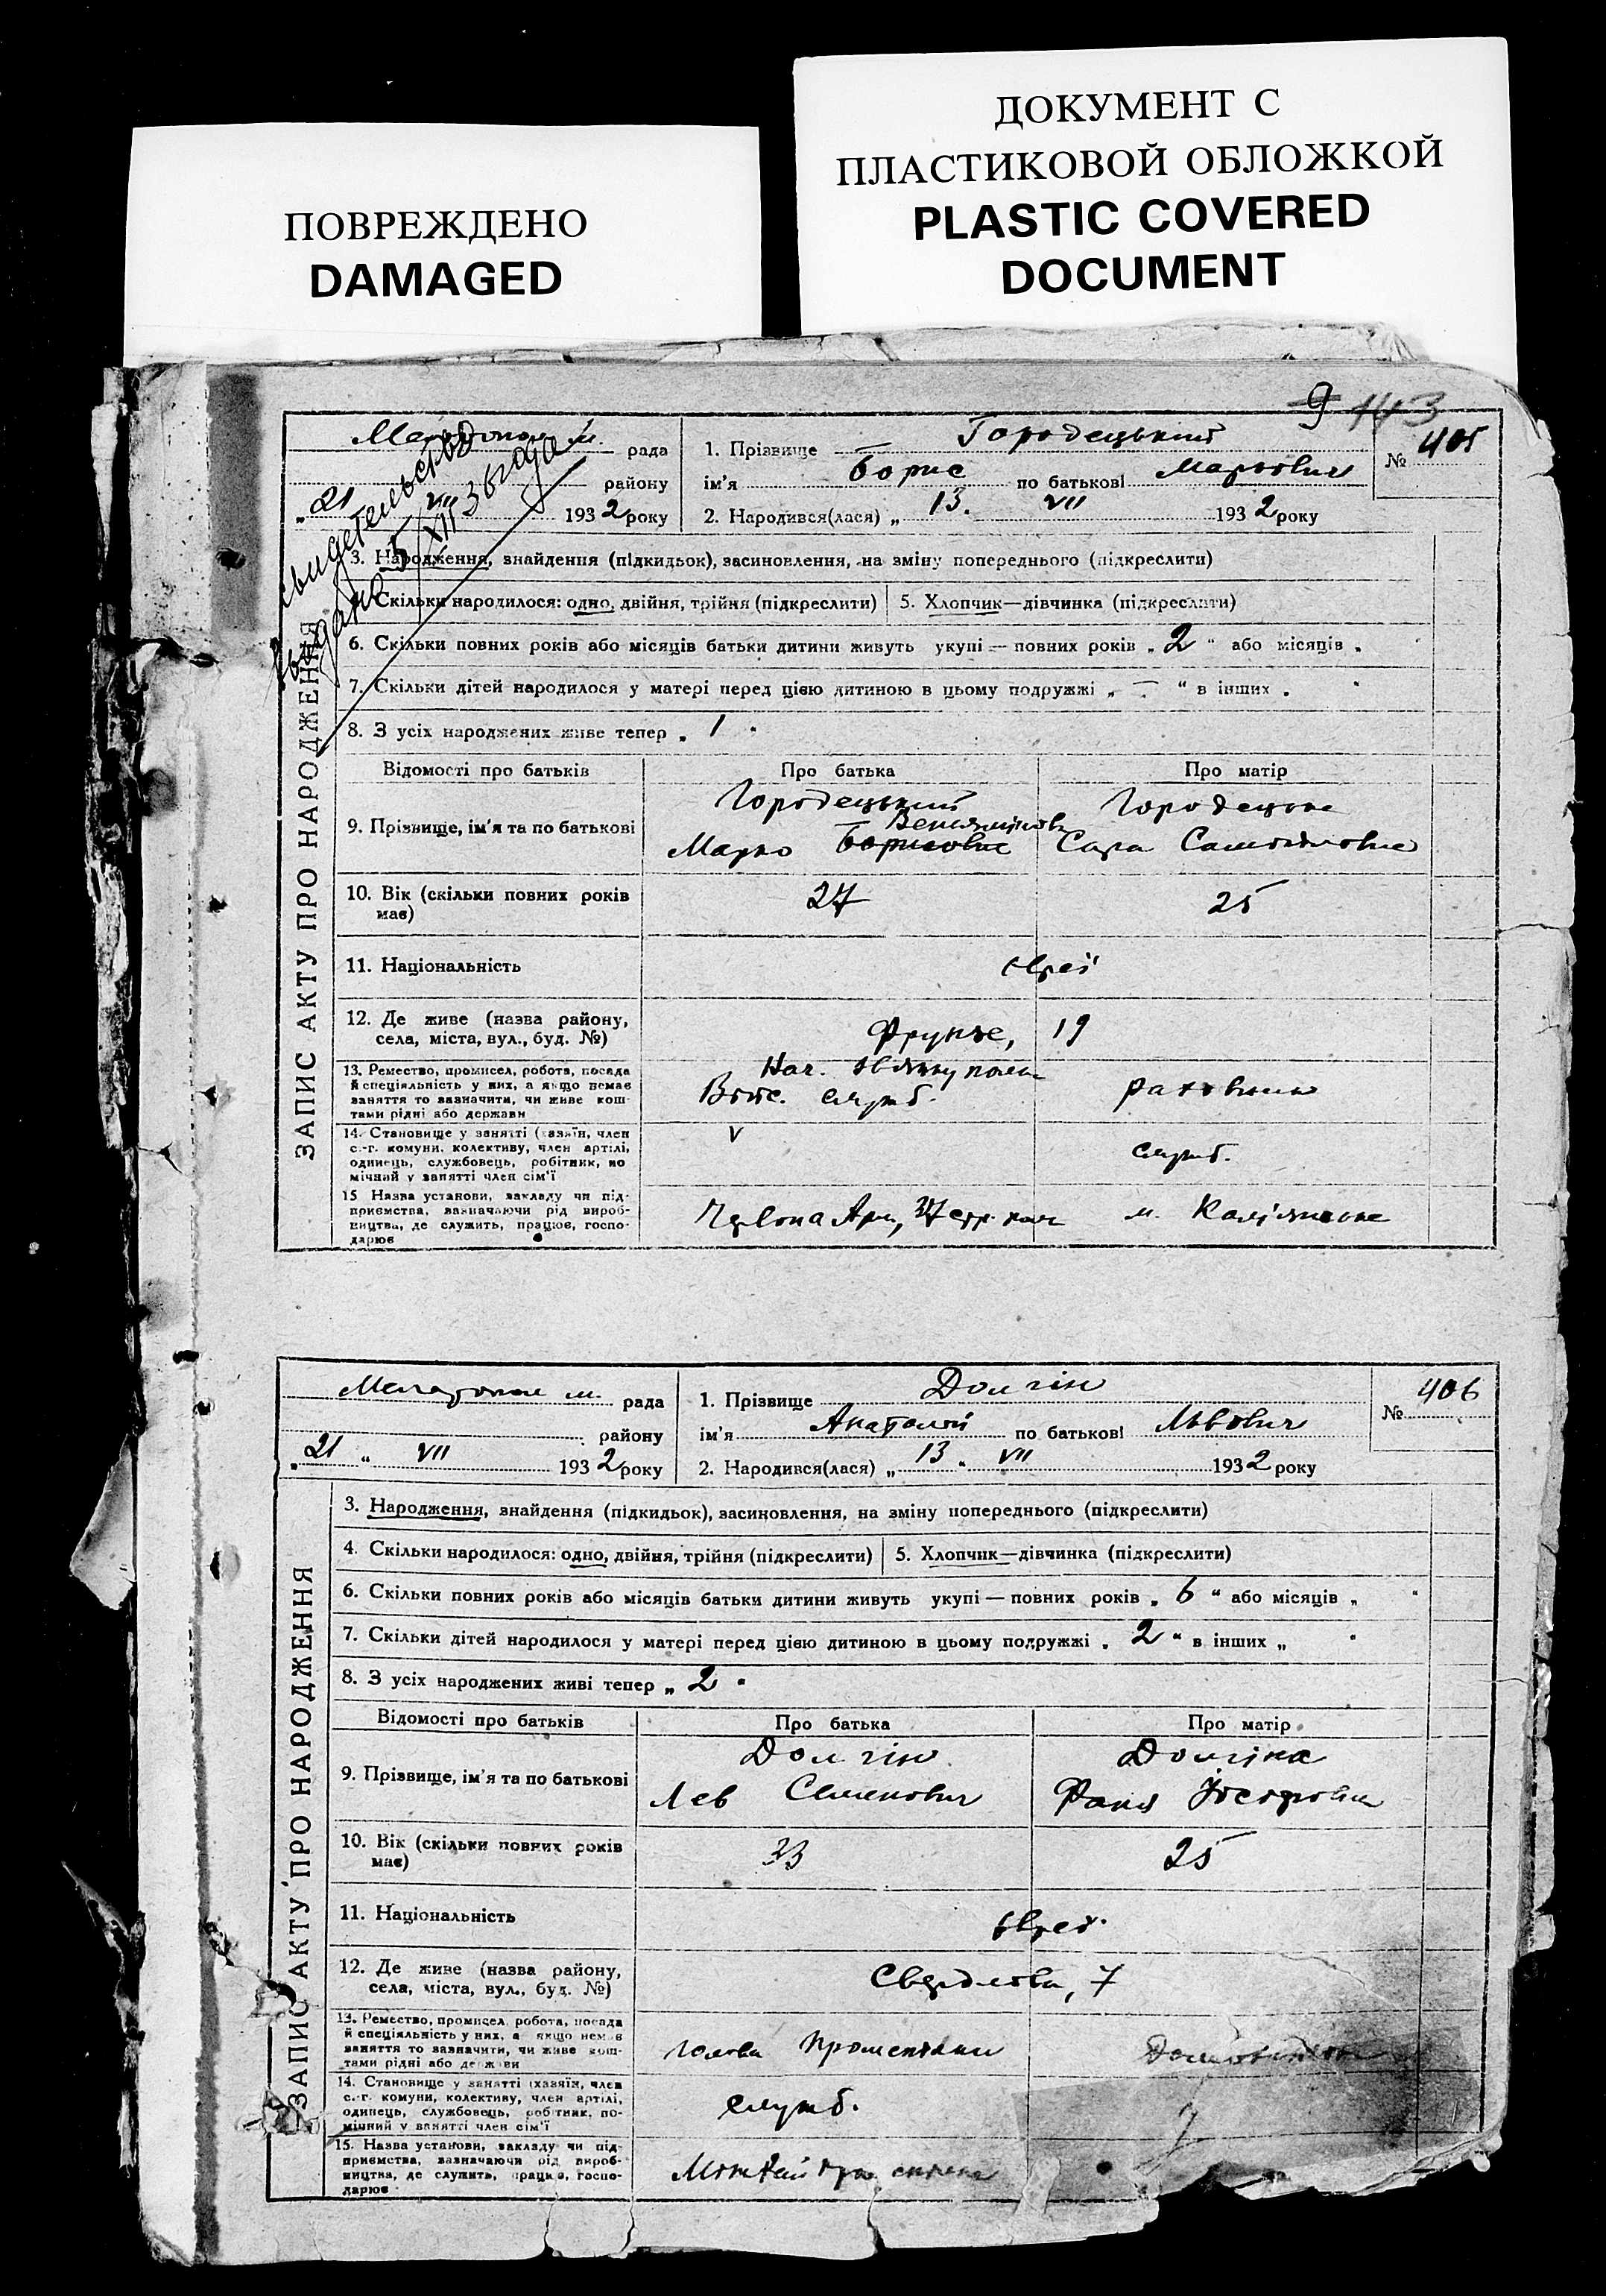 ПОВРЕЖДЕНО
DAMAGED
ДОКУМЕНТ С
ПЛАСТИКОВОЙ ОБЛОЖКОЙ
PLASTIC COVERED
DOCUMENT
9 143
рада
району
„21 VII 1932 року
1. Прізвище Городецький
ім'я Борис по батькові Маркович
№ 405
2. Народився(лася) „13. VII 1932 року
ЗАПИС АКТУ ПРО НАРОДЖЕННЯ
3. Народження, знайдення (підкидьок), засиновлення, на зміну попереднього (підкреслити)
Скільки народилося: одно, двійня, трійня (підкреслити) 5. Хлопчик—дівчинка (підкреслити)
6. Скільки повних років або місяців батьки дитини живуть укупі — повних років „ 2 “ або місяців „
7. Скільки дітей народилося у матері перед цією дитиною в цьому подружжі „ — “ в інших „
8. З усіх народжених живе тепер „ 1 “
Відомості про батьків Про батька Про матір
9. Прізвище, ім'я та по батькові
Городецький
Марко Борисович
Городецька
Сара
10. Вік (скільки повних років
має)
27 25
11. Національність
євреї
12. Де живе (назва району,
села, міста, вул., буд. №)
Фрунзе, 19
13. Ремество, промисел, робота, посада
й спеціяльність у них, а якщо немає
заняття то зазначити, чи живе кош-
тами рідні або держави
служб.
14. Становище у занятті (хазяїн, член
с.-г. комуни, колективу, член артілі,
одинець, службовець, робітник, по
мічний у занятті член сім'ї
V служб.
15 Назва установи, закладу чи під-
приємства, зазначаючи рід вироб-
ництва, де служить, працює, госпо-
дарює
рада
району
„21 “ VII 1932 року
1. Прізвище Долгін
ім'я Анатолій по батькові Львович
№ 406
2. Народився(лася) „13 “ VII 1932 року
ЗАПИС АКТУ ПРО НАРОДЖЕННЯ
3. Народження, знайдення (підкидьок), засиновлення, на зміну попереднього (підкреслити)
4. Скільки народилося: одно, двійня, трійня (підкреслити) 5. Хлопчик—дівчинка (підкреслити)
6. Скільки повних років або місяців батьки дитини живуть укупі — повних років „ 6 “ або місяців „ “
7. Скільки дітей народилося у матері перед цією дитиною в цьому подружжі „ 2 “ в інших „ “
8. З усіх народжених живі тепер „ 2 “
Відомості про батьків Про батька Про матір
9. Прізвище, ім'я та по батькові
Долгін
Лев Семенович
Долгіна
Фаня
10. Вік (скільки повних років
має)
33 25
11. Національність
євреї
12. Де живе (назва району,
села, міста, вул., буд. №)
Свердлова, 7
13. Ремество, промисел, робота, посада
й спеціяльність у них, а якщо немає
заняття то зазначити, чи живе кош-
тами рідні або держави
голова
14. Становище у занятті (хазяїн, член
с.-г. комуни, колективу, член артілі,
одинець, службовець, робітник, по-
мічний у занятті член сім'ї
служб.
15. Назва установи, закладу чи під-
приємства, зазначаючи рід вироб-
ництва, де служить, працює, госпо-
дарює